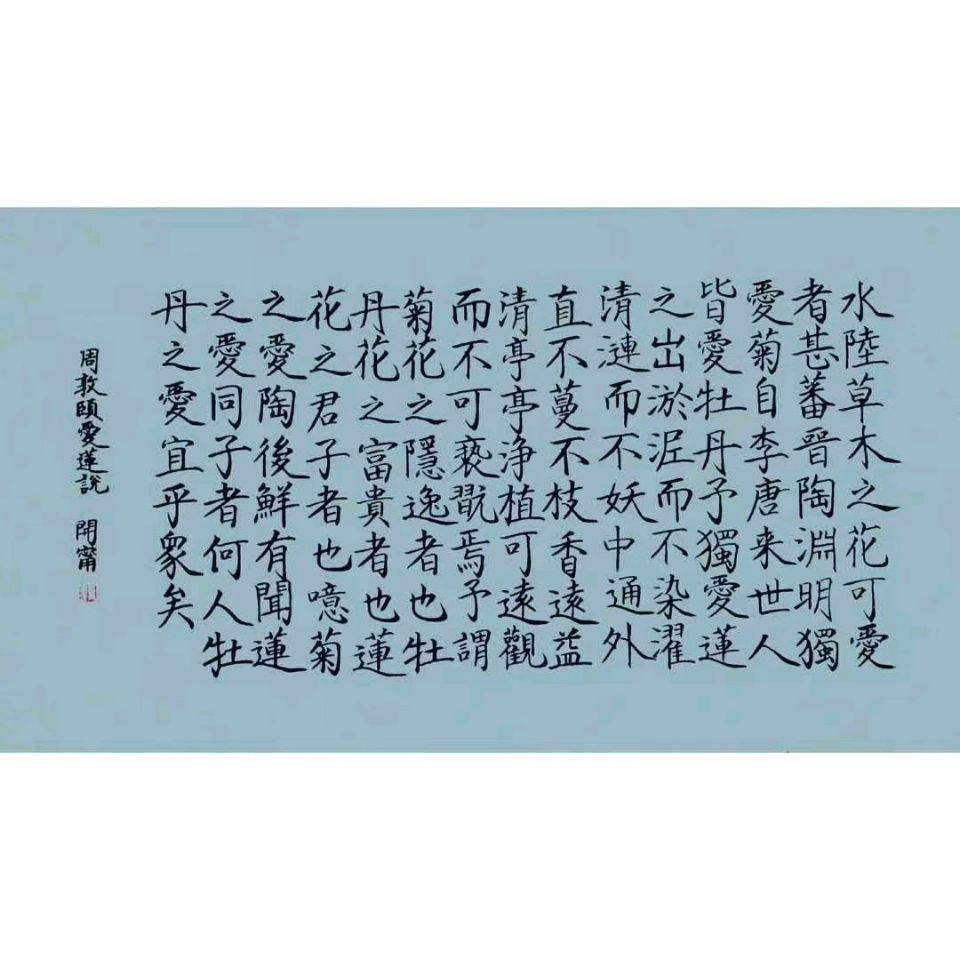 水陸草木之花可愛
者甚蕃晉陶淵明獨
愛菊自李唐来世人
皆愛牡丹予獨愛蓮
之出淤泥而不染濯
清漣而不妖中通外
直不蔓不枝香遠益
清亭亭浄植可遠觀
而不可褻翫焉予謂
菊花之隱逸者也牡
丹花之富貴者也蓮
花之君子者也噫菊
之愛陶後鮮有聞蓮
之愛同子者何人牡
丹之愛宜乎眾矣
周敦頤愛蓮說 開甯